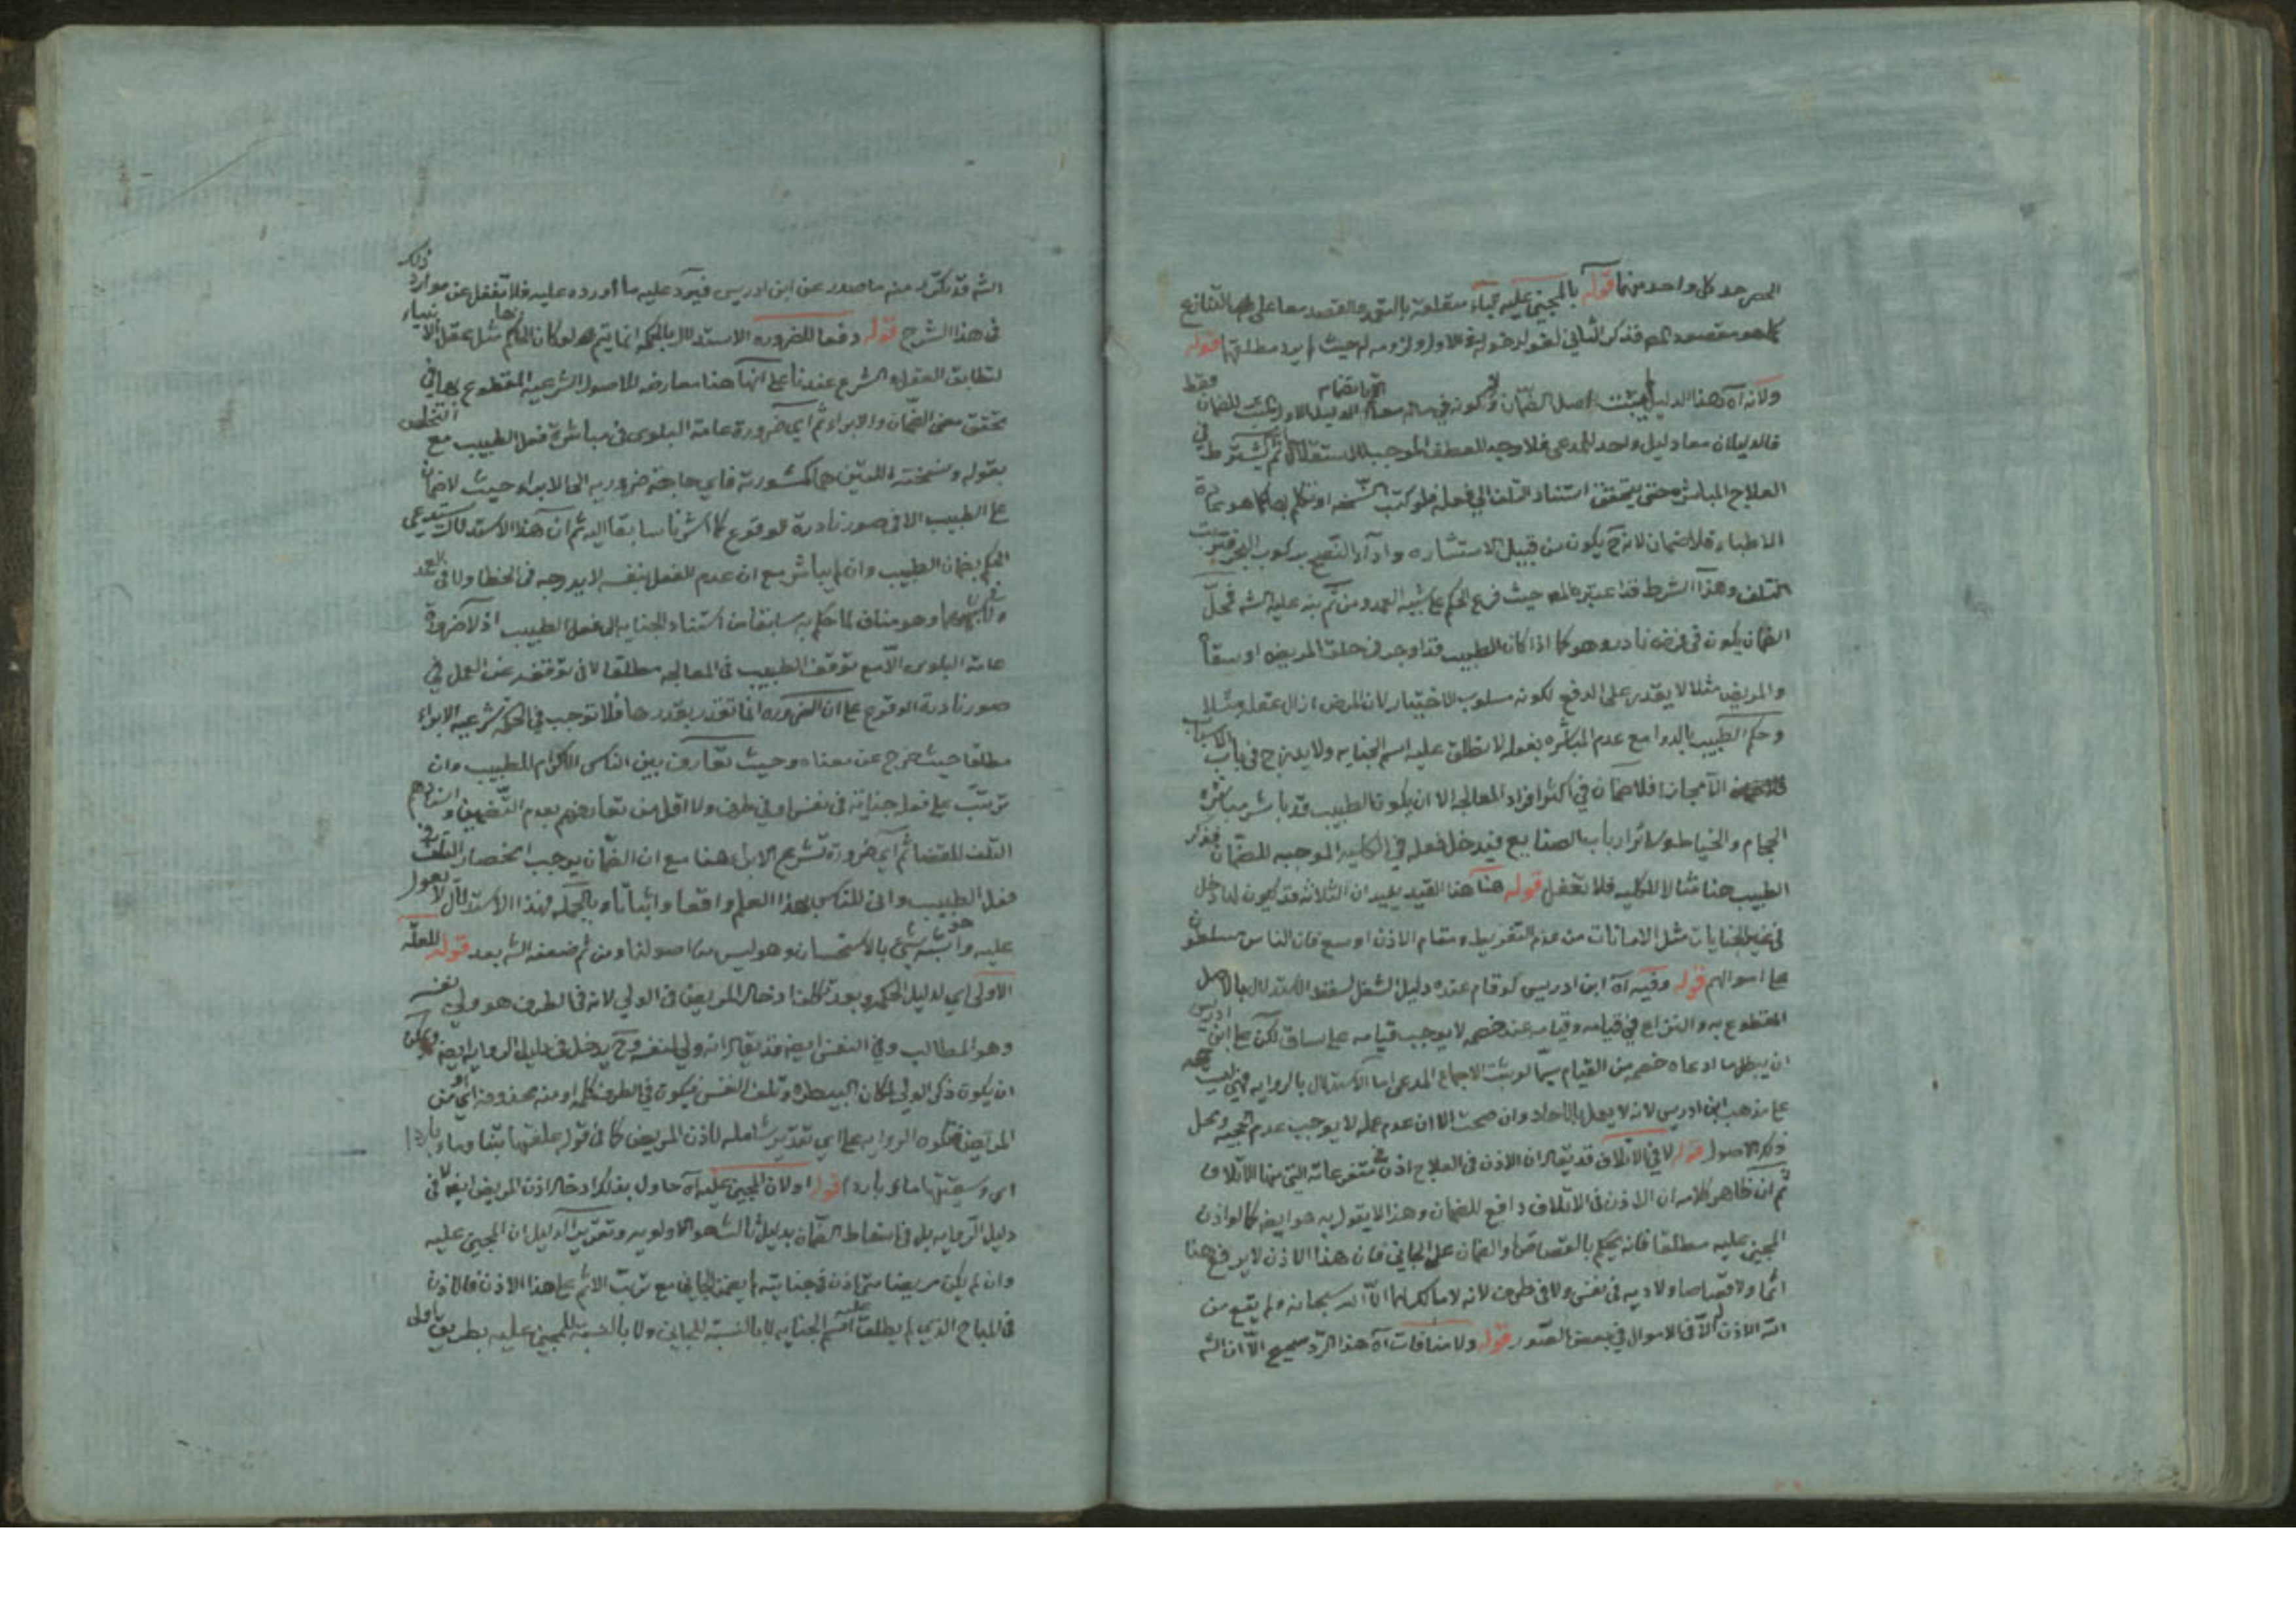 الحصر حد كل واحد منهما قوله بالمجني عليه آه متعلقة بالتقي والقصد معا على التنازع
كما هو مقصود المص فذكر الثاني لغو لدخوله في الاول ولزومه له حيث لم يرد مطلقها قوله
ولانه آه هذا الدليل يثبت اصل الضمان وكونه في ماله معا الدليل الاول يثبت الضمان فقط
فالدليلان معا دليل واحد للمدعى فلا وجه للعطف الموجب للاستقلال ثم يشترط في
العلاج المباشرة حتى يتحقق استناد التلف الى فعله فلو كتب النسخه او تكلم بها كما هو
الاطباء فلا ضمان لانه ح يكون من قبيل الاستشاره واداء النصح بركوب البحر فترتب
التلف وهذا الشرط قد اعتبره المص حيث فرع الحكم على شبيه العمد ومن ثم نبه عليه الشه فمحل
الضمان يكون في فرض نادر وهو كما اذا كان الطبيب قد اوجر في حلق المريض او سقاه
والمريض مثلا لا يقدر على الدفع لكونه مسلوب الاختيار لان المرض ازال عقله مثلا
وحكم الطبيب بالدوا مع عدم المباشره بفعله لا يطلق عليه اسم الجنايه ولا يندرج في باب الاسباب
الا مجازا فلا ضمان في اكثر افراد المعالجه الا ان يكون الطبيب قد باشر مباشرة
الحجام والخياط وسائر ارباب الصنايع فيدخل فعله في الكليه الموجبه للضمان فذكر
الطبيب هنا مثالا للكليه فلا تغفل قوله هنا هذا القيد يفيد ان الثلاثه قد يكون لها دخل
في غير الجنايات مثل الامانات من عدم التفريط ومقام الاذن اوسع فان الناس مسلطون
على اموالهم قوله وفيه آه ابن ادريس لو قام عنده دليل الشغل لسقط الاستدلال بالاصل
المقطوع به والنزاع في قيامه وقيامه عند خصمه لا يوجب قيامه على ساق لكن على ابن ادريس
ان يبطل ما ادعاه خصمه من القيام سيما لو يثبت الاجماع المدعى اما الاستدلال بالروايه فهي ليست حجه
على مذهب ابن ادريس لانه لا يعمل بالاحاد وان صحت الا ان عدم عمله لا يوجب عدم حجيته ومحل
ذكره الاصول قوله لا في الاتلاف قد يقال ان الاذن في العلاج اذن في متفرعاته التي منها الاتلاف
ثم ان ظاهر كلامه ان الاذن في الاتلاف دافع للضمان وهذا لا يقول به هو ايضا كما لو اذن
المجني عليه مطلقا فانه يحكم بالقصاص او الضمان على الجاني فان هذا الاذن لا يرفع هنا
اثما ولا قصاصا ولا ديه في نفس ولا في طرف لانه لا مالك لهما الا الله سبحانه ولم يقع من
الله الاذن الا في الاموال في بعض الصور قوله ولا منافات آه هذا الرد صحيح الا ان الشه
الشه قد تكرر منه ما صدر عن ابن ادريس فيرد عليه ما اورده عليه فلا تغفل عن موارد ذلك
في هذا الشرح قوله دفعا للضروره الاستدلال بالحكمه انما يتم لو كان الحاكم بها مثل عقل الانبياء
لتطابق العقل والشرع عندنا على انها هنا معارضه للاصول الشرعيه المقطوع بها في
تحقق معنى الضمان والابراء ثم اي ضرورة عامة البلوى في مباشرة فعل الطبيب مع التخلص
بقوله ونسخته اللتين هما كمشورته فاي حاجة ضروريه الى الابراء حيث لا ضمان
على الطبيب الا في صور نادرة الوقوع كما اشرنا سابقا اليه ثم ان هذا الاستدلال يستدعي
الحكم بضمان الطبيب وان لم يباشر مع ان عدم الفعل بنفسه لا يدرجه في الخطا ولا في العمد
ولا شبههما وهو مناف لما حكم به سابقا من استناد الجنايه الى فعل الطبيب اذ لا ضرورة
عامة البلوى الا مع توقف الطبيب في المعالجه مطلقا لا في توقفه عن العمل في
صور نادرة الوقوع على ان الضروره انما تقدر بقدرها فلا توجب في الحكمه شرعيه الابراء
مطلقا حيث خرج عن معناه وحيث تعارف بين الناس الاكرام للطبيب وان
ترتب على فعله جناية في نفس او في طرف ولا اقل من تعارفهم بعدم التضمين واسنادهم
التلف للقضا ثم اي ضرورة تشرع الابراء هنا مع ان الضمان يوجب انحصار التلف في
فعل الطبيب وانى للناس بهذا العلم واقعا واثباتا وبالجمله فهذا الاستدلال لا يعول
عليه وهو اشبه شي بالاستحسان وهو ليس من اصولنا ومن ثم ضعفه الشه بعد قوله للعلة
الاولى اي لدليل الحكمه وبعد تكلفنا ادخال المريض في الولي لانه في الطرف هو ولي نفسه
وهو المطالب وفي النفس ايضا قد يقال انه ولي لنفسه وح يدخل في دليل الروايه ايضا ويمكن
ان يكون ذكر الولي لمكان البيطره وتلف النفس فيكون في الطرف كلمه او منه محذوفه اي او من
المريض فتكون الروايه على اي تقدير شامله لاذن المريض كما في قوله علفتها تبنا وماء باردا
اي وسقيتها ماء باردا قوله اولان المجني عليه آه حاول بذلك ادخال اذن المريض ايضا لا في
دليل الروايه بل في اسقاط الضمان بدليل ثالث هو الاولويه وتقرير الدليل ان المجني عليه
وان لم يكن مريضا متى اذن في جنايته لم يضمن الجاني مع ترتب الاثم على هذا الاذن فالاذن
في المباح الذي لم يطلق عليه اسم الجنايه لا بالنسبة للجاني ولا بالنسبة للمجني عليه بطريق اولى